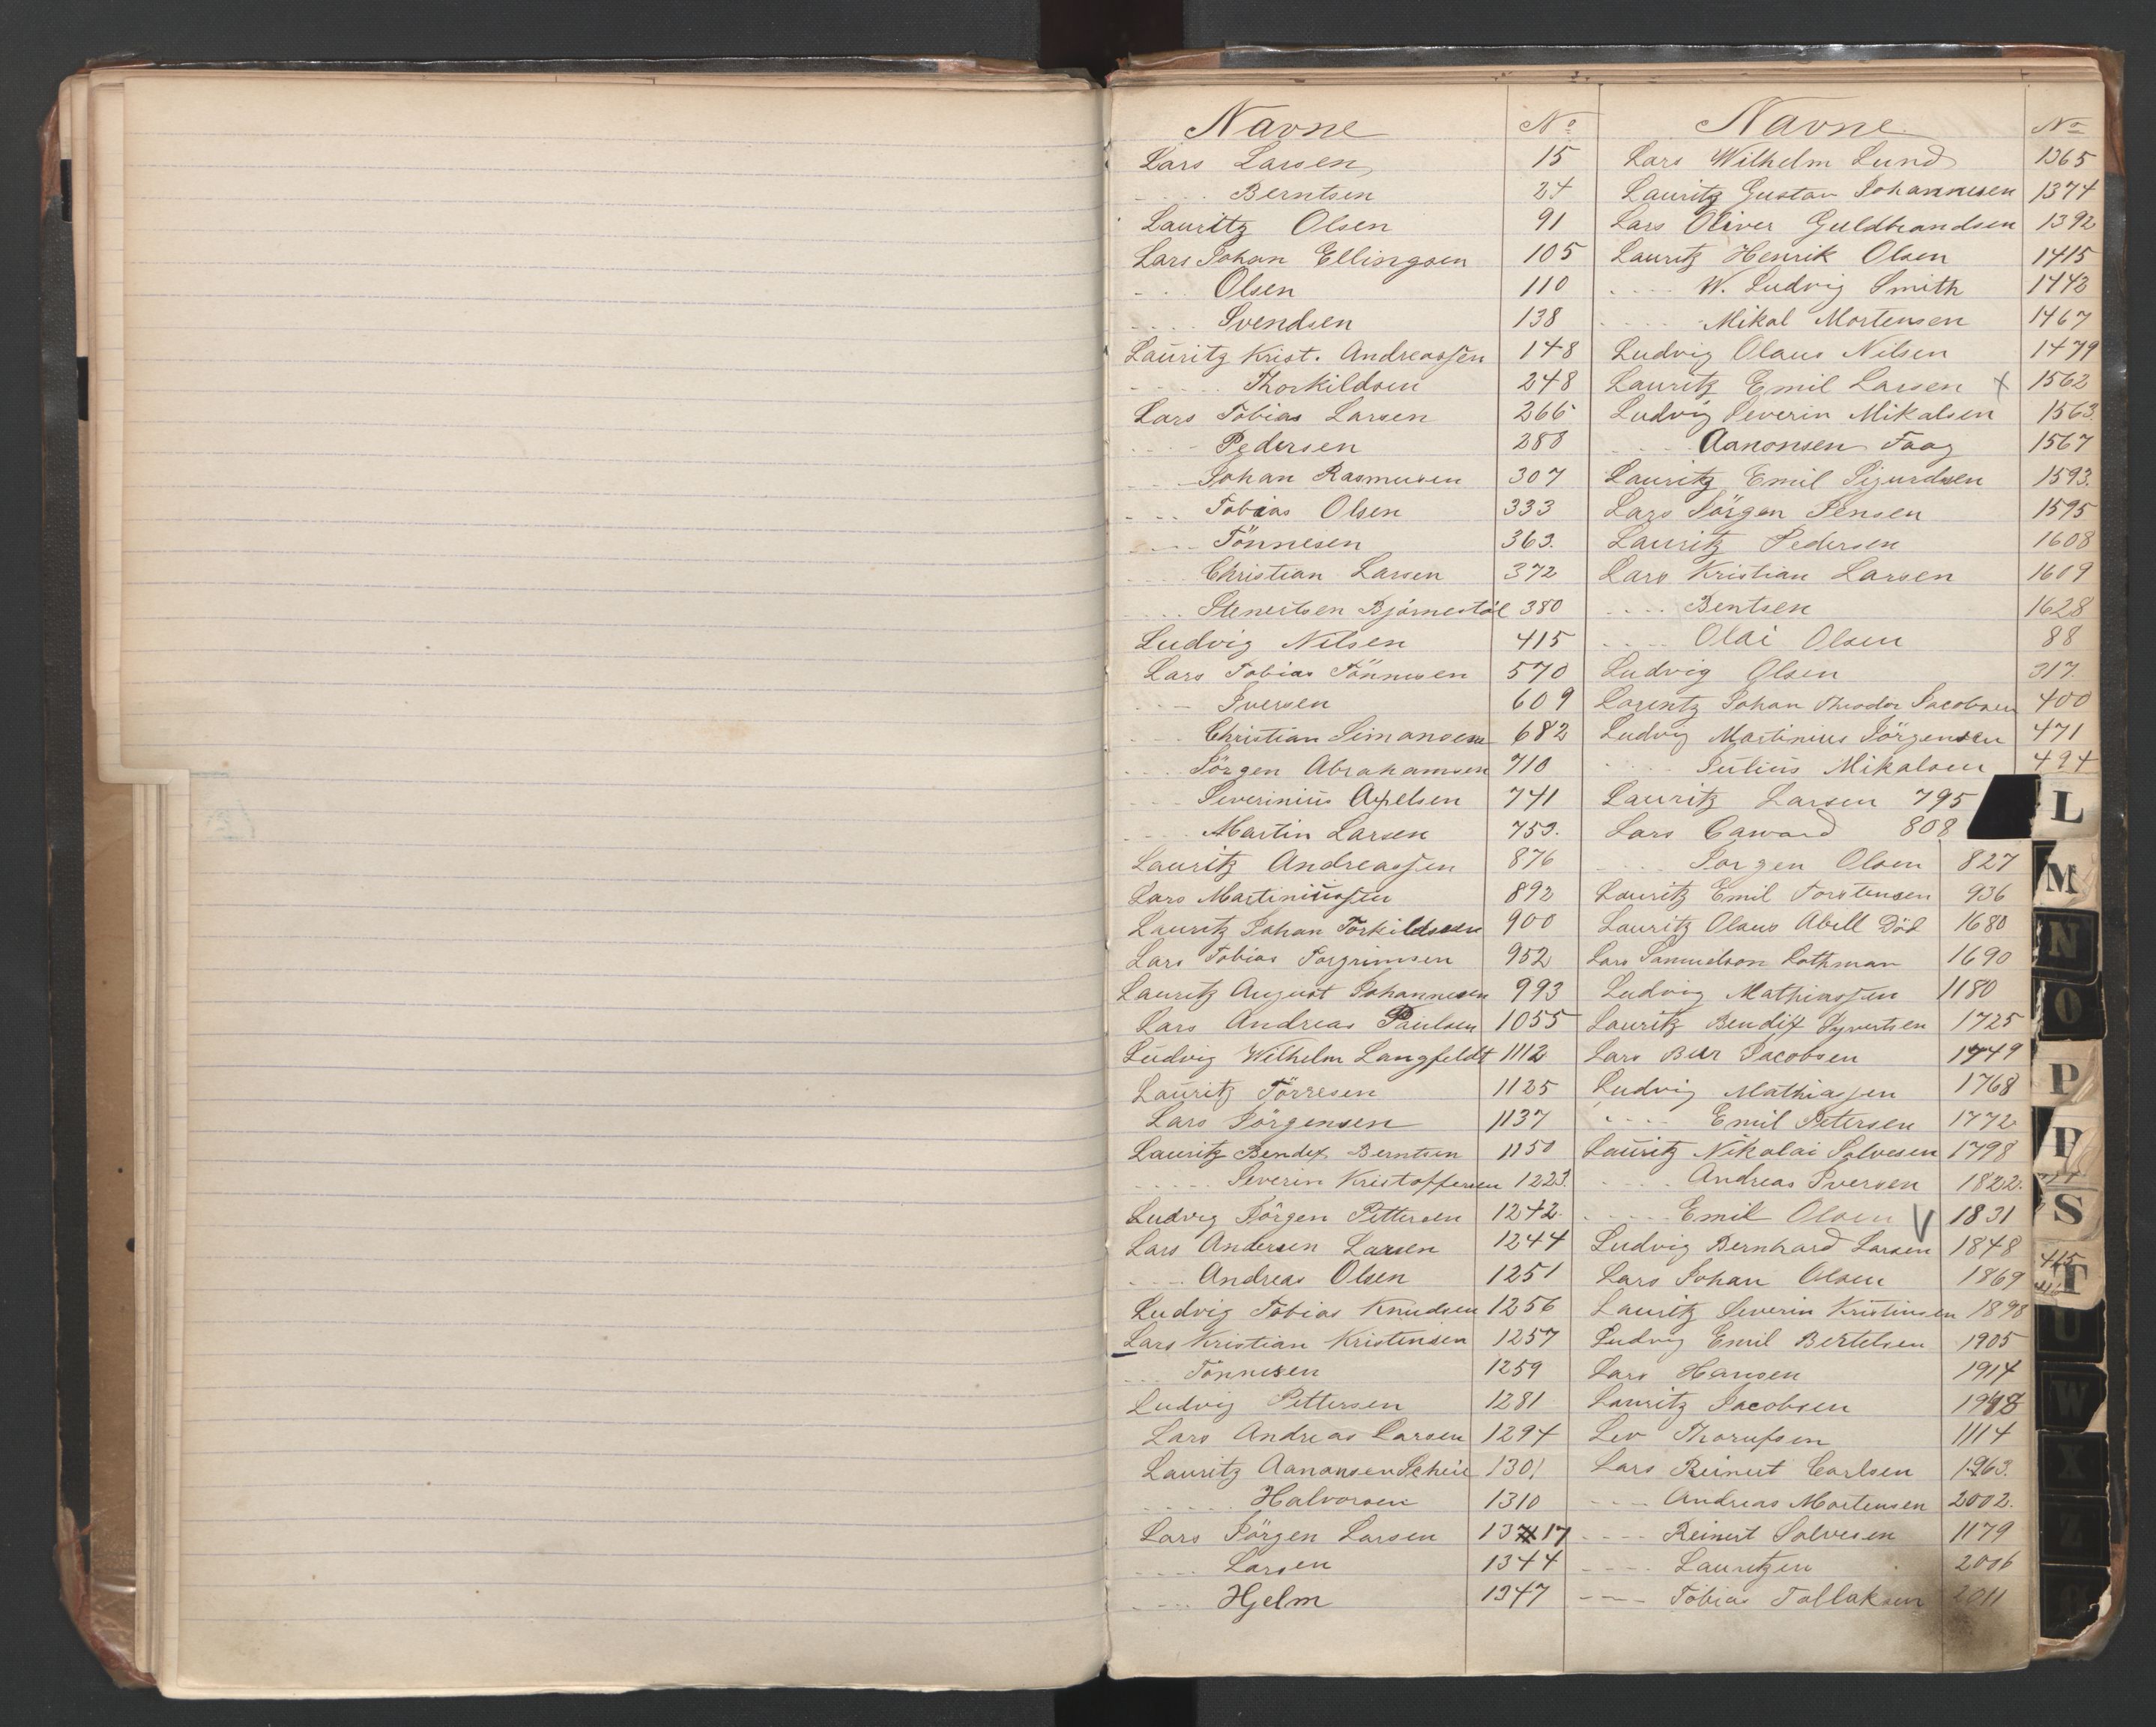 Navne No
Lars Larsen 15
" Berntsen 24
Lauritz Olsen 91
Lars Johan Ellingsen 105
" Olsen 110
" Svendsen 138
Lauritz Krist. Andreassen 148
" Thorkildsen 248
Lars Tobias Larsen 266
" Pedersen 288
" Johan Rasmusen 307
" Tobias Olsen 333
" Tönnesen 363.
" Christian Larsen 372
" Stenertsen Bjørnestöl 380
Ludvig Nilsen 415
Lars Tobias Tönnesen 570
" Iversen 609
" Christian Simonsen 682
" Jörgen Abrahamsen 710
" Severinius Axelsen 741
" Martin Larsen 753.
Lauritz Andreassen 876
Lars Martiniussen 892
Lauritz Johan Torkildsen 900
Lars Tobias Torgrimsen 952
Lauritz August Johannesen 993
Lars Andreas Paulsen 1055
Ludvig Wilhelm Langfeldt 1112
Lauritz Törresen 1125
Lars Jörgensen 1137
Lauritz Bendix Berntsen 1150
" Severin Kristoffersen 1223.
Ludvig Jörgen Pettersen 1242.
Lars Andersen Larsen 1244
" Andreas Olsen 1251
Ludvig Tobias Knudsen 1256
Lars Kristian Kristensen 1257
" Tönnesen 1259
Ludvig Pettersen 1281
Lars Andreas Larsen 1294
Lauritz Aanonsen Scheie 1301
" Halvorsen 1310
Lars Jörgen Larsen 1317
" Larsen 1344
" Hjelm 1347
Navne No
Lars Wilhelm Lund 1365
Lauritz Gustav Johannesen 1374
Lars Oliver Guldbrandsen 1392
Lauritz Henrik Olsen 1415
" W. Ludvig Smith 1443
" Mikal Mortensen 1467
Ludvig Olaus Nilsen 1479
Lauritz Emil Larsen + 1562
Ludvig Severin Mikalsen 1563.
" Aanonsen Faag 1567
Lauritz Emil Sigurdsen 1593.
Lars Jörgen Jensen 1595
Lauritz Pedersen 1608
Lars Kristian Larsen 1609
" Bentsen 1628
" Olai Olsen 88
Ludvig Olsen 317.
Lorentz Johan Theodor Jacobsen 400
Ludvig Martinius Jörgensen 471
" Julius Mikalsen 494
Lauritz Larsen 795
Lars Caward 808
" Jorgen Olsen 827
Lauritz Emil Torstensen 936
Lauritz Olaus Abell Död 1680
Lars Samuelson Rothman 1690
Ludvig Mathiassen 1180
Lauritz Bendix Syvertsen 1725
Lars Beer Jacobsen 1749
Ludvig Mathiassen 1768
" Emil Petersen 1772
Lauritz Nikolai Salvesen 1798
" Andreas Iversen 1822.
" Emil Olsen V 1831
Ludvig Bernhard Larsen 1848
Lars Johan Olsen 1869
Lauritz Severin Kristinsen 1898
Ludvig Emil Bertelsen 1905
Lars Hansen 1914
Lauritz Jacobsen
Lev 1114
Lars Reinert Carlsen 1963.
" Andreas Mortensen 2002.
" Reinert Salvesen 1179
" Lauritzen 2006
" Tobias Tallaksen 2011
L
M
N
O
P
S
T
U
W
X
Z